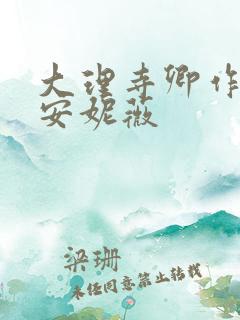 大理寺卿作
安妮薇
梁珊
未经同意禁止转载